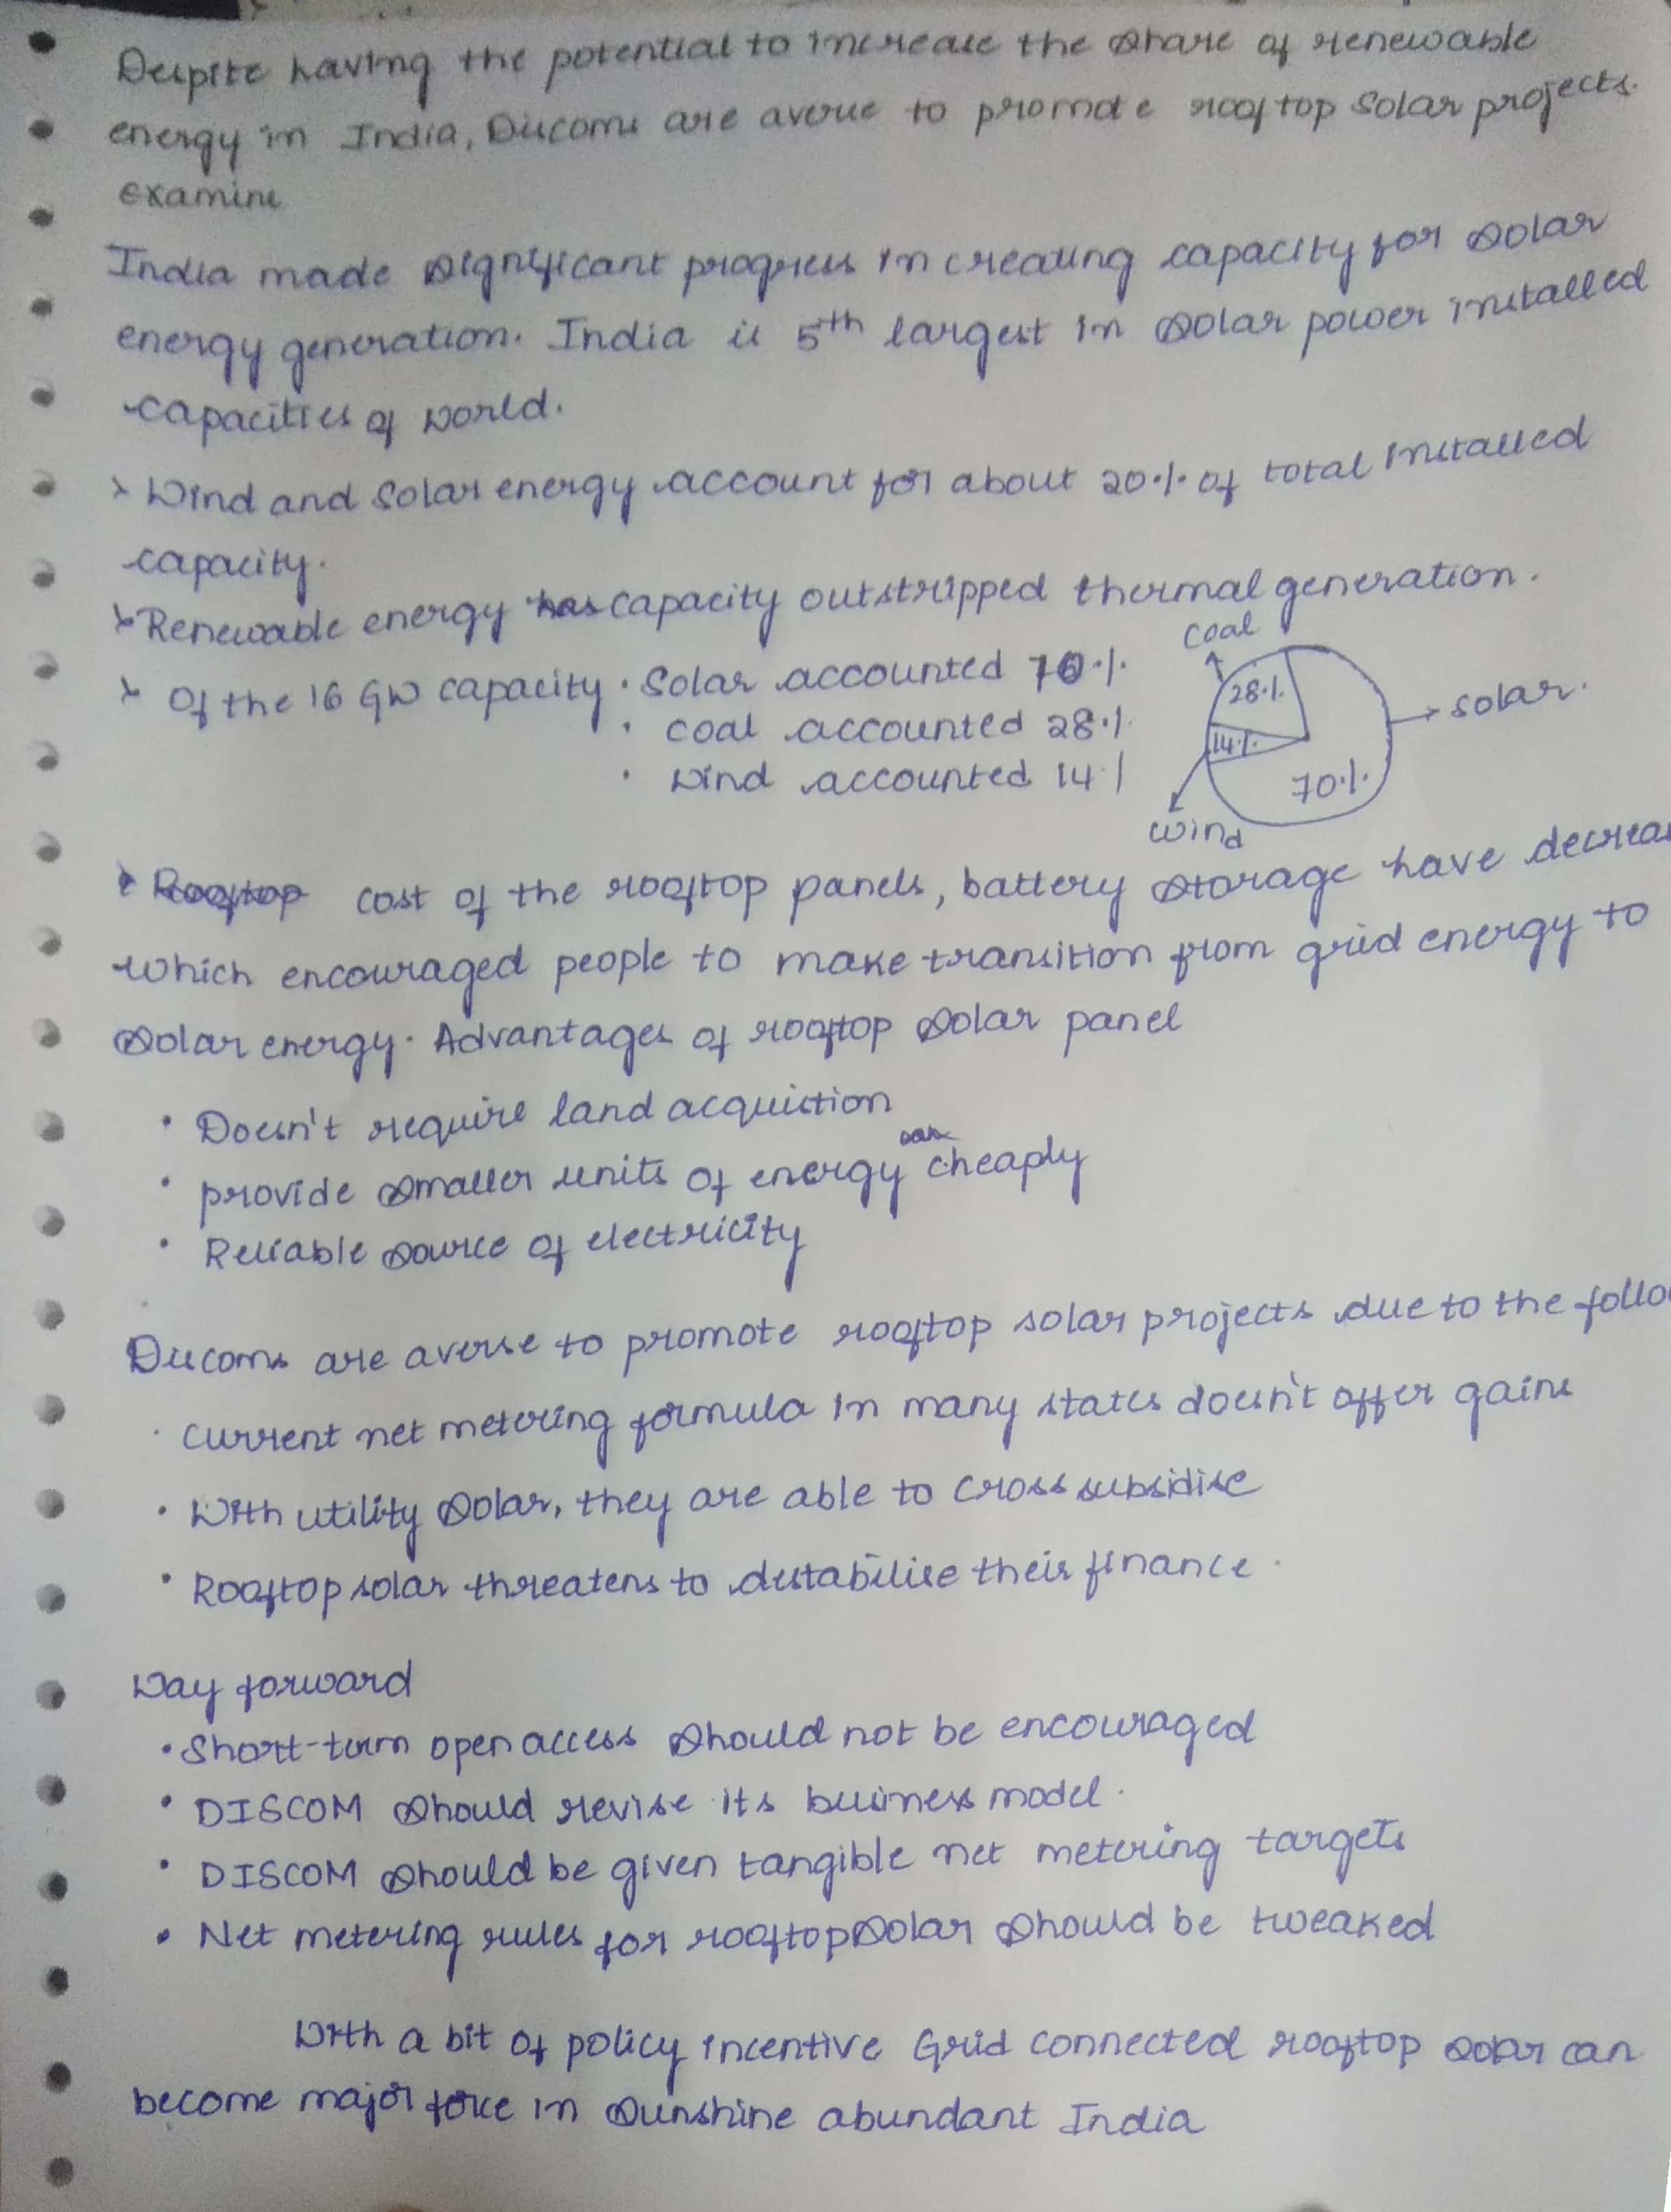 Despite having the potential to increase the share of renewable
energy in India, Discoms are averse to promote rooftop solar projects.
Examine
India made significant progress in creating capacity for solar
energy generation. India is 5th largest in solar power installed
capacities of world.
> Wind and solar energy account for about 20% of total installed
capacity.
> Renewable energy has capacity outstripped thermal generation.
> Of the 16 GW capacity • Solar accounted 70%
• coal accounted 28%
• wind accounted 14%
coal
28%
solar.
14%
70%
wind
> Rooftop cost of the rooftop panels, battery storage have decrea
which encouraged people to make transition from grid energy to
solar energy. Advantages of rooftop solar panel
• Doesn't require land acquistion
• provide smaller units of energy cheaply
• Reliable source of electricity
Discoms are averse to promote rooftop solar projects due to the follo
• current net metering formula in many states doesn't offer gains
• With utility solar, they are able to cross subsidise
• Rooftop solar threatens to destabilise their finance.
Way forward
• Short-term open access should not be encouraged
• DISCOM should revise its business model.
• DISCOM should be given tangible net metering targets
• Net metering rules for rooftop solar should be tweaked
With a bit of policy incentive Grid connected rooftop solar can
become major force in sunshine abundant India